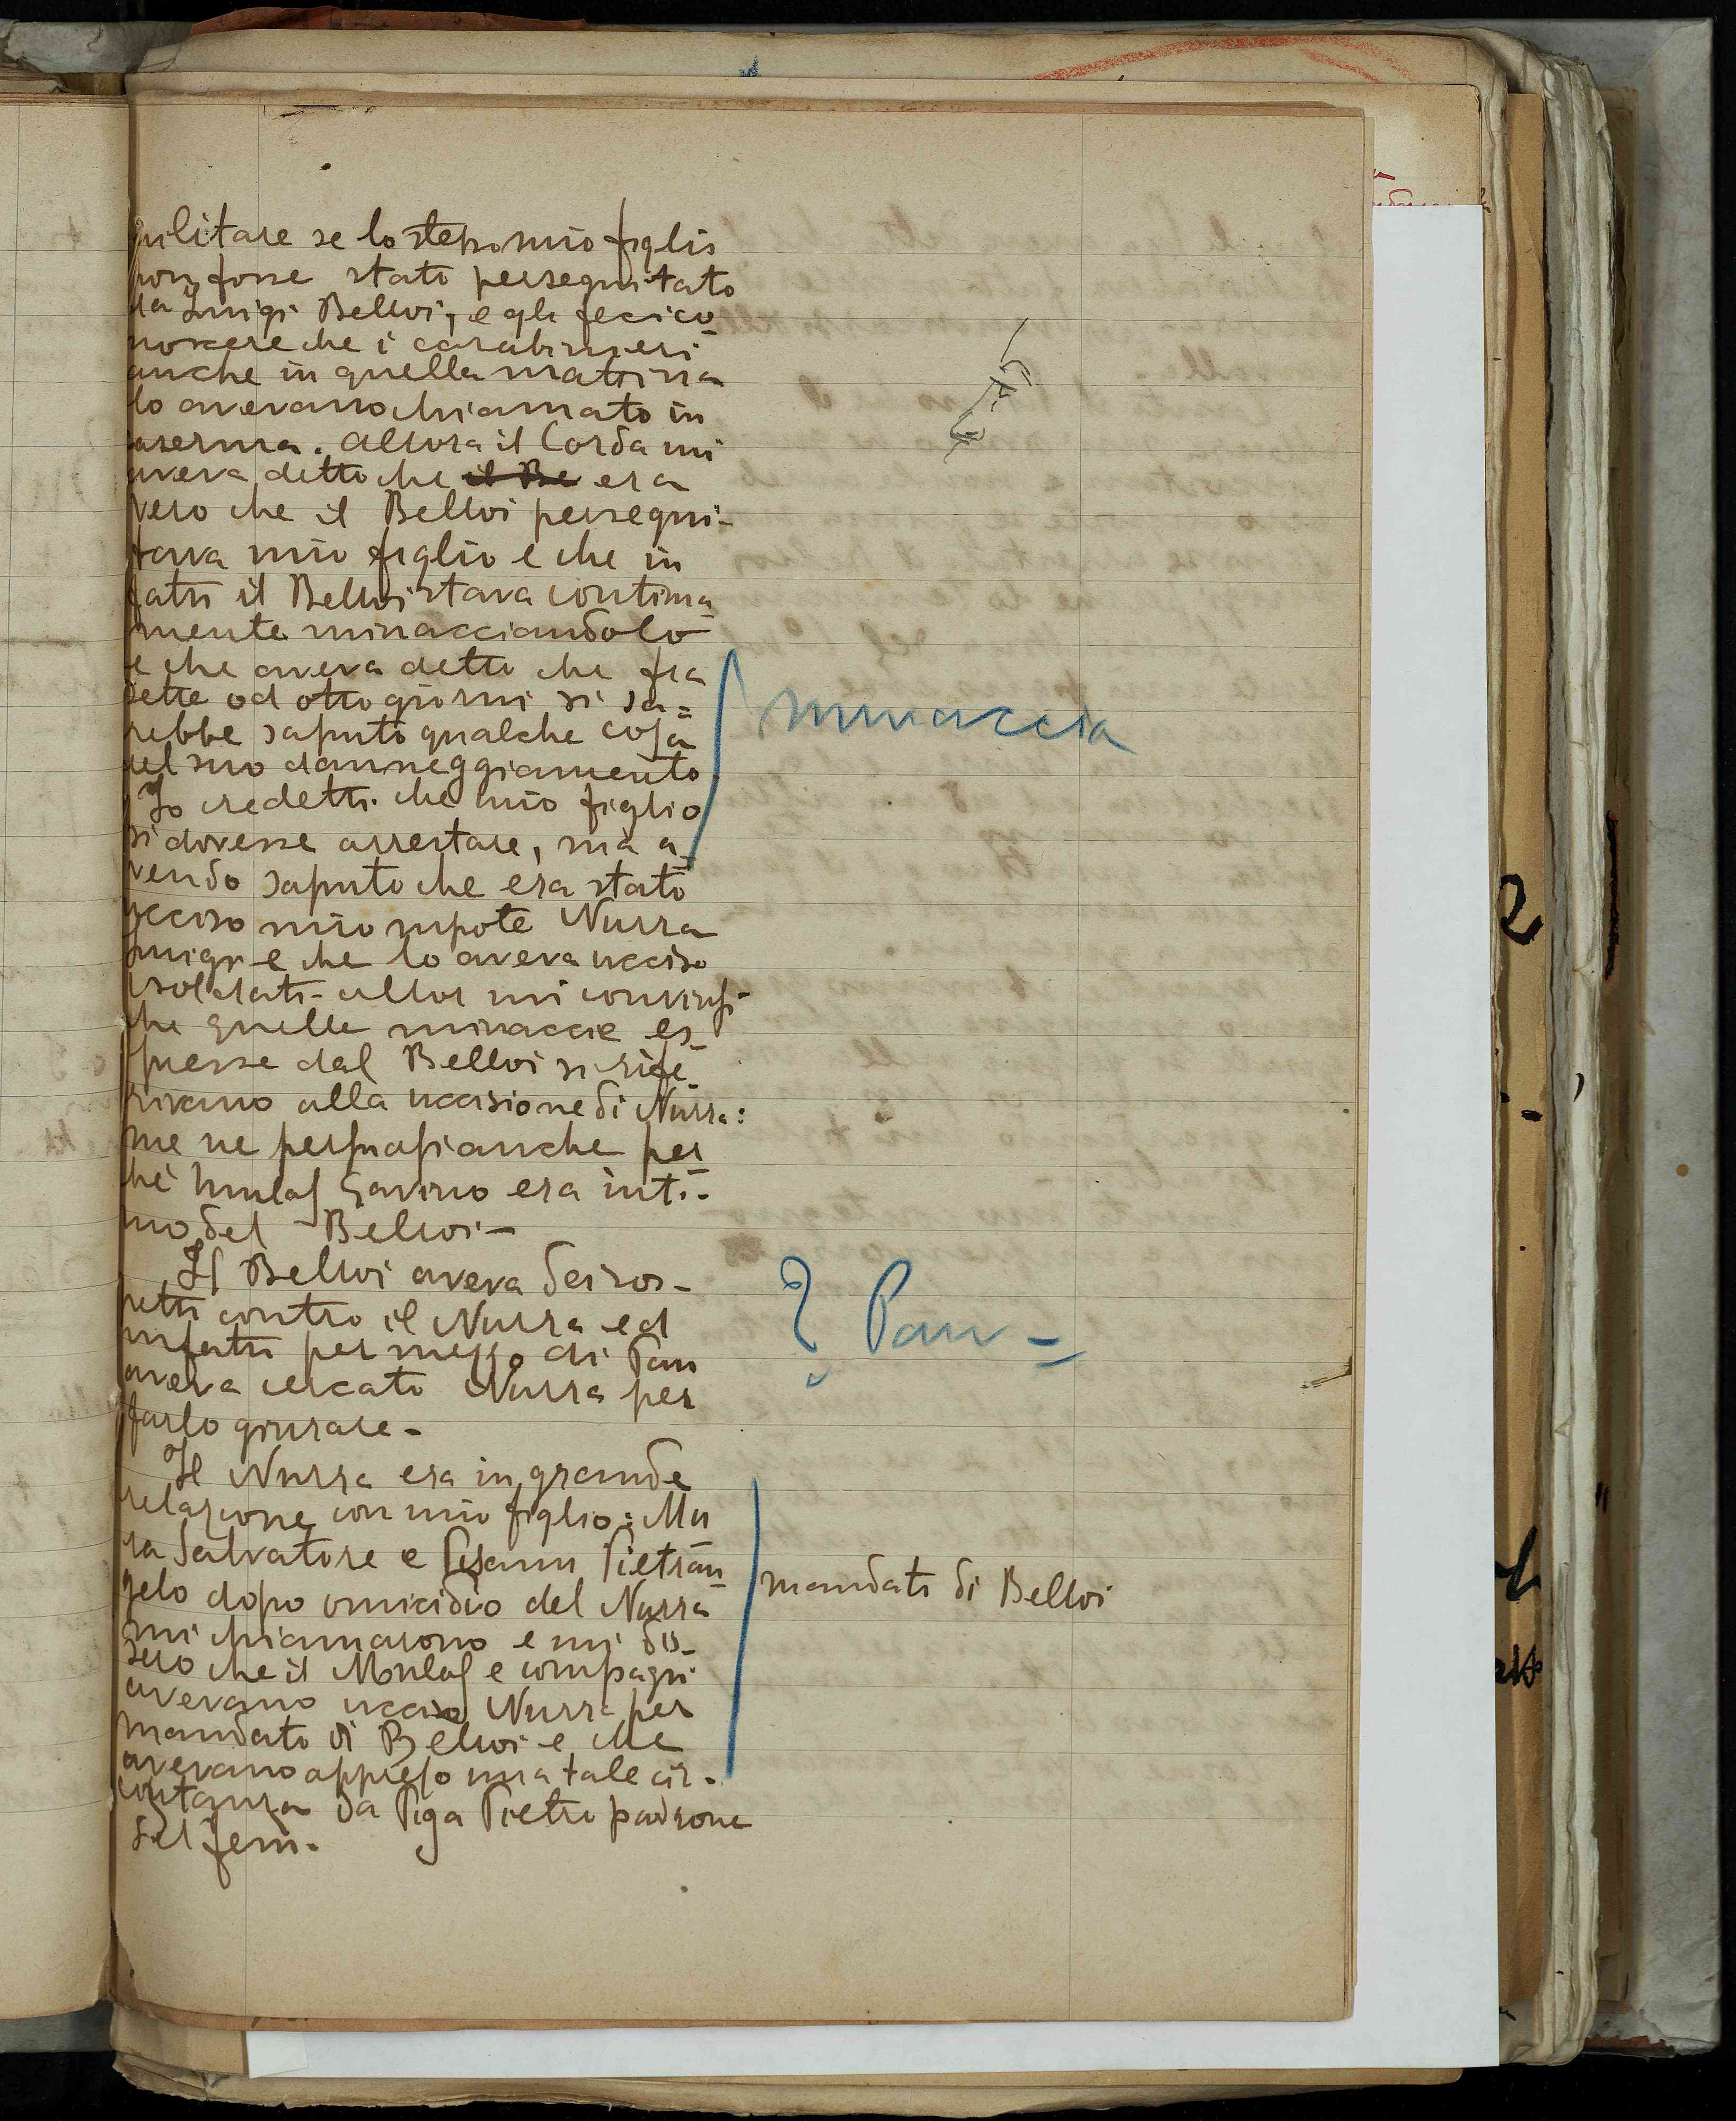 militare se lo stesso mio figlio
non fosse stato perseguitato
da Luigi Belloi, e gli feci co
noscere che i carabinieri
anche in quella mattina
lo avevano chiamato in
caserma. Allora il Corda mi
aveva detto che il Be era
vero che il Belloi persegui-
tava mio figlio e che in
fatti il Belloi stava continua
mente minacciandolo
e che aveva detto che fra
sette od otto giorni si sa=
rebbe saputo qualche cosa
del suo danneggiamento
Io credetti che mio figlio
si dovesse arrestare, ma a-
vendo saputo che era stato
ucciso mio nipote Nurra
Luigi e che lo aveva ucciso
soldati - allor mi convinsi
che quelle minaccie es-
presse dal Belloi si rife-
rivano alla uccisione di Nurra:
me ne persuasi anche per
chè Mulas Gavino era inti-
mo del Belloi -
Il Belloi aveva dei sos-
petti contro il Nurra ed
infatti per mezzo di Pau
aveva cercato Nurra per
farlo giurare -
Il Nurra era in grande
relazione con mio figlio: Mu
ra Salvatore e Pisanu Pietran
gelo dopo omicidio del Nurra
mi chiamarono e mi dis-
sero che il Mulas e compagni
avevano ucciso Nurra per
mandato di Belloi e che
avevano appreso una tale cir-
costanza da Piga Pietro padrone
del
minaccia
? Pau =
mandato di Belloi